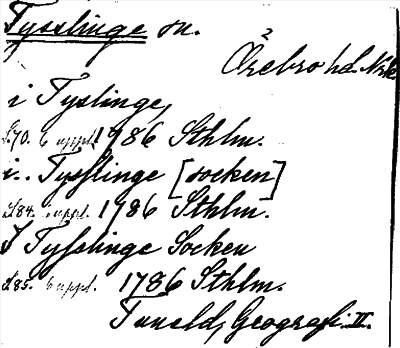 Tysslinge sn.
Örebro hd. Nrke
i Tyslinge,
s. 70. 6 uppl. 1786 Sthlm.
i.. Tysslinge [socken]
s. 84. 6 uppl. 1786 Sthlm.
I Tysslinge Socken
s. 85. 6 uppl. 1786 Sthlm.
Tuneld, Geografi. II.